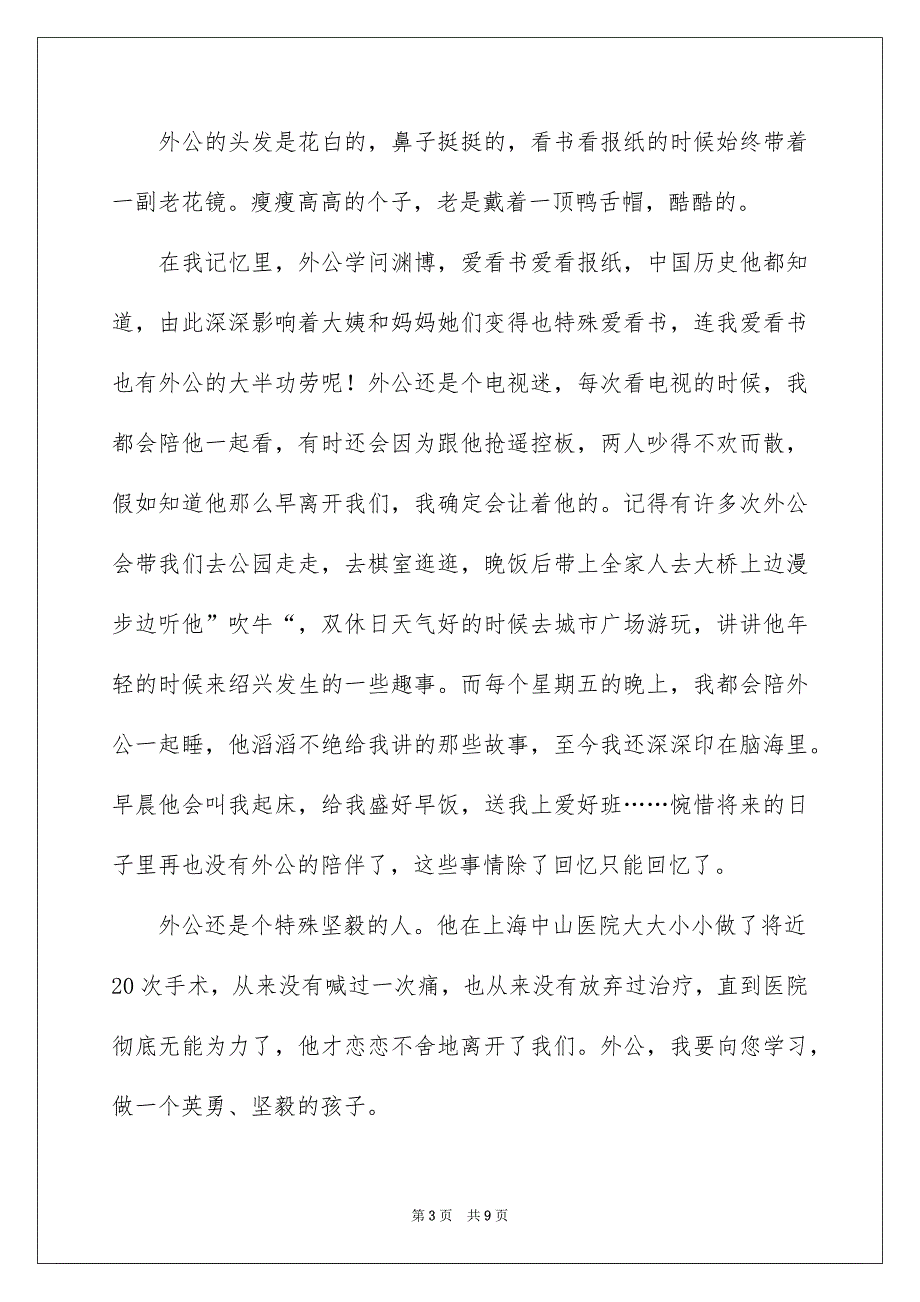 外公的头发是花白的，鼻子挺挺的，看书看报纸的时候始终带着
一副老花镜。瘦瘦高高的个子，老是戴着一顶鸭舌帽，酷酷的。
在我记忆里，外公学问渊博，爱看书爱看报纸，中国历史他都知
道，由此深深影响着大姨和妈妈她们变得也特殊爱看书，连我爱看书
也有外公的大半功劳呢！外公还是个电视迷，每次看电视的时候，我
都会陪他一起看，有时还会因为跟他抢遥控板，两人吵得不欢而散，
假如知道他那么早离开我们，我确定会让着他的。记得有许多次外公
会带我们去公园走走，去棋室逛逛，晚饭后带上全家人去大桥上边漫
步边听他”吹牛“，双休日天气好的时候去城市广场游玩，讲讲他年
轻的时候来绍兴发生的一些趣事。而每个星期五的晚上，我都会陪外
公一起睡，他滔滔不绝给我讲的那些故事，至今我还深深印在脑海里。
早晨他会叫我起床，给我盛好早饭，送我上爱好班……惋惜将来的日
子里再也没有外公的陪伴了，这些事情除了回忆只能回忆了。
外公还是个特殊坚毅的人。他在上海中山医院大大小小做了将近
20 次手术，从来没有喊过一次痛，也从来没有放弃过治疗，直到医院
彻底无能为力了，他才恋恋不舍地离开了我们。外公，我要向您学习，
做一个英勇、坚毅的孩子。
第 3 页 共 9 页